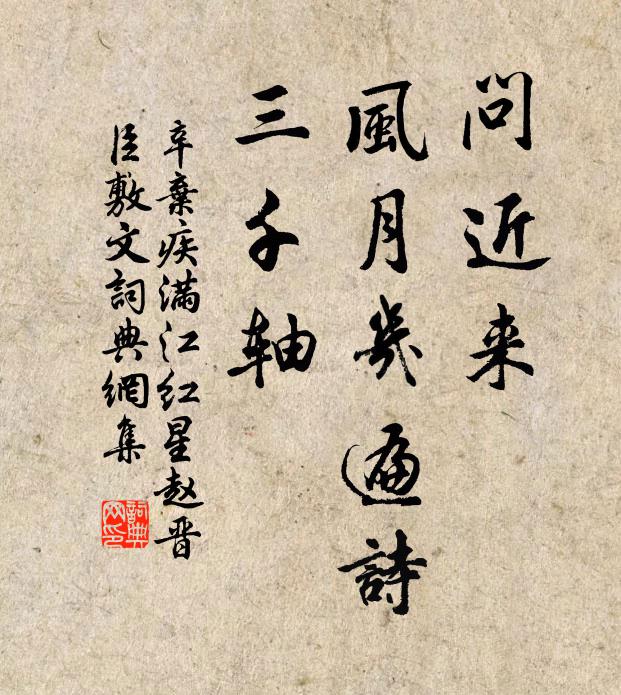 問近来
風月幾遍詩
三千軸
辛棄疾滿江紅星赵晋
臣敷文詞典網集
詞典
网印